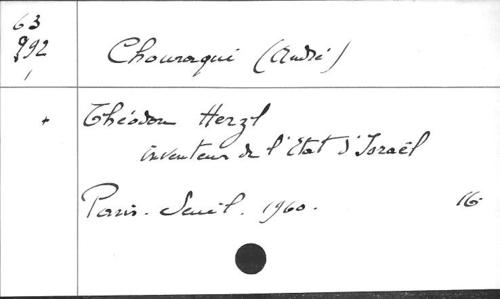 63
992
Chouraqui (André)
+ Théodore Herzl
inventeur de l'Etat d'Israël
Paris. Seuil. 1960. 16